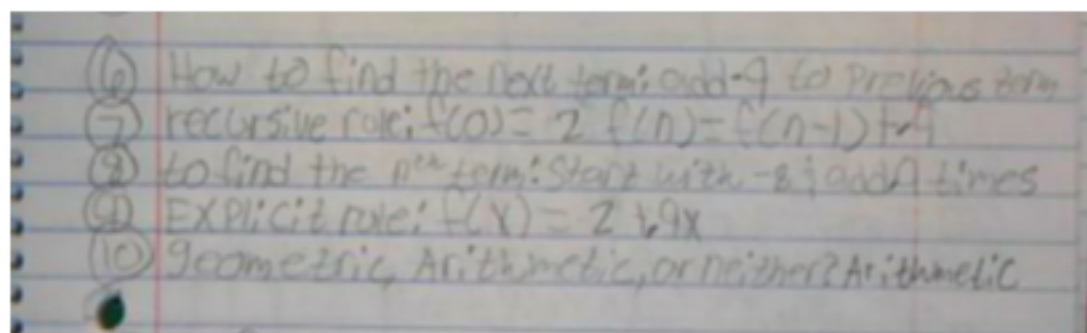 (6) How to find the next term: add -9 to previous term
(7) recursive rule: f(0) = 2 f(n) = f(n-1) + -9
(8) to find the nth term: Start with -8; add times
(9) Explicit rule: f(x) = 2 + 9x
(10) geometric, Arithmetic, or neither? Arithmetic